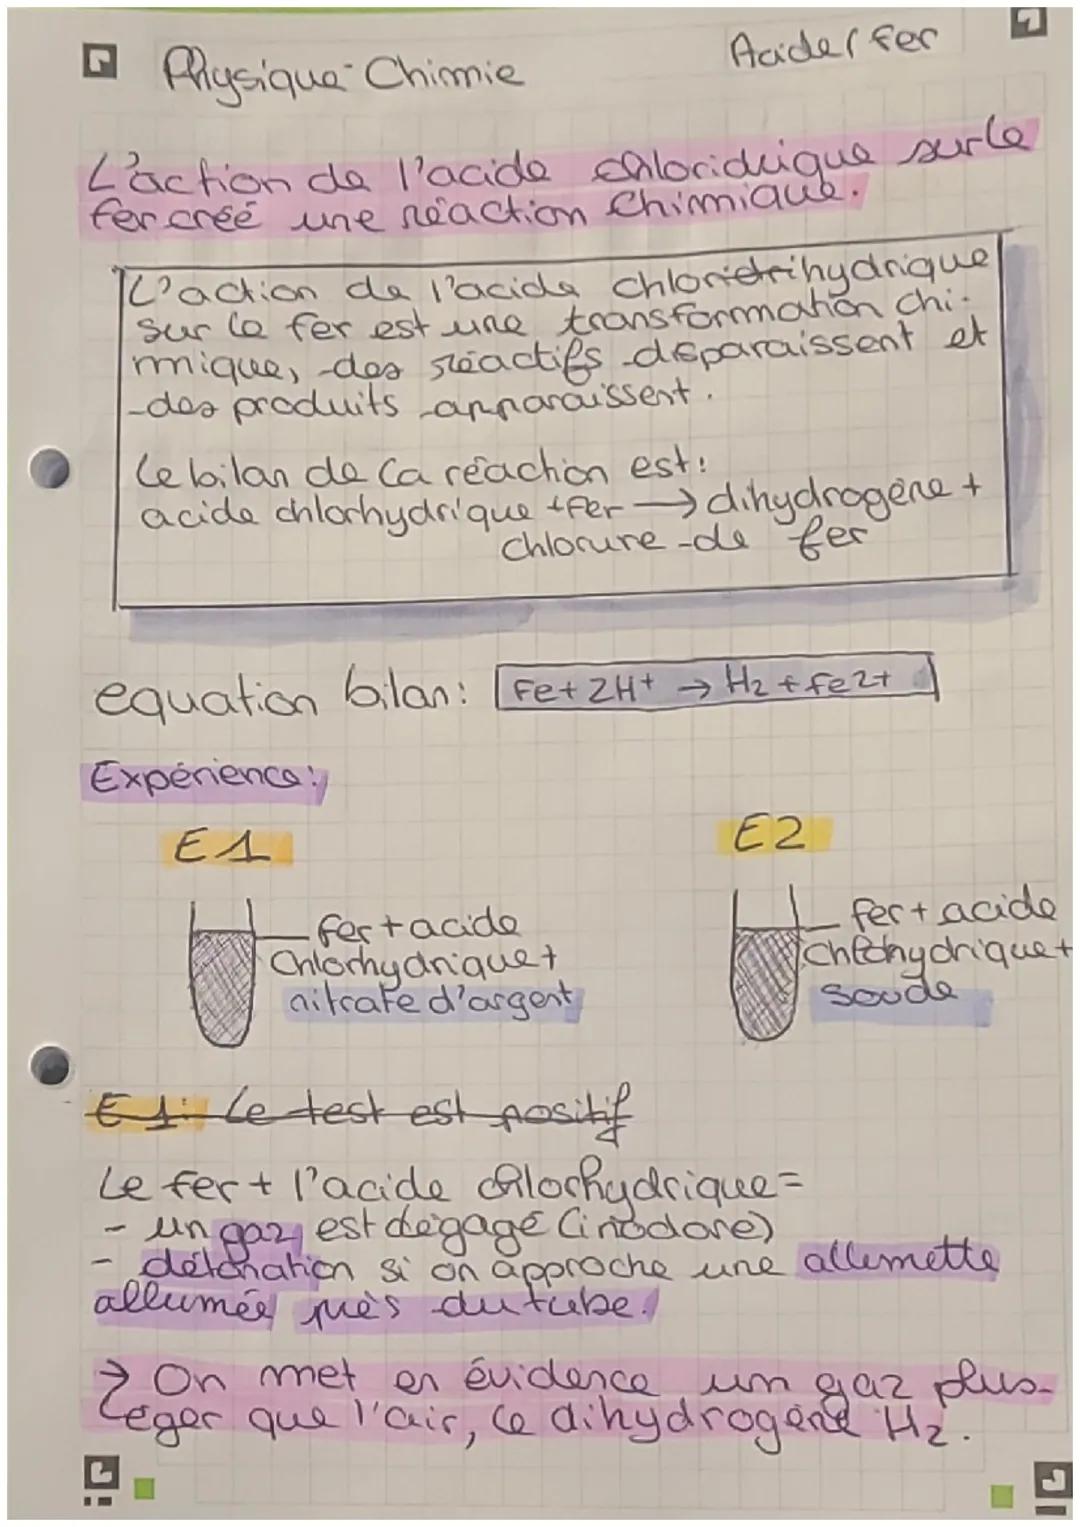 Physique-Chimie
Acide/fer
L'action de l'acide chloridrique sur le
fer créé une réaction chimique.
L'action de l'acide chlorietrihydrique
sur le fer est une transformation chi-
mique, des réactifs disparaissent et
des produits apparaissent.
Le bilan de la réaction est:
acide chlorhydrique + fer → dihydrogène +
chlorure de fer
equation bilan: Fe + 2H+ → H2 + fe2+
Expérience:
E1
E2
fer + acide
Chlorhydrique +
nitrate d'argent
fer + acide
Chlohydrique +
soude
E1: Le test est positif
Le fer + l'acide chlorhydrique =
- un gaz est dégagé (inodore)
- détonation si on approche une allumette
allumée près du tube.
→ On met en évidence un gaz plus
léger que l'air, le dihydrogène H2.